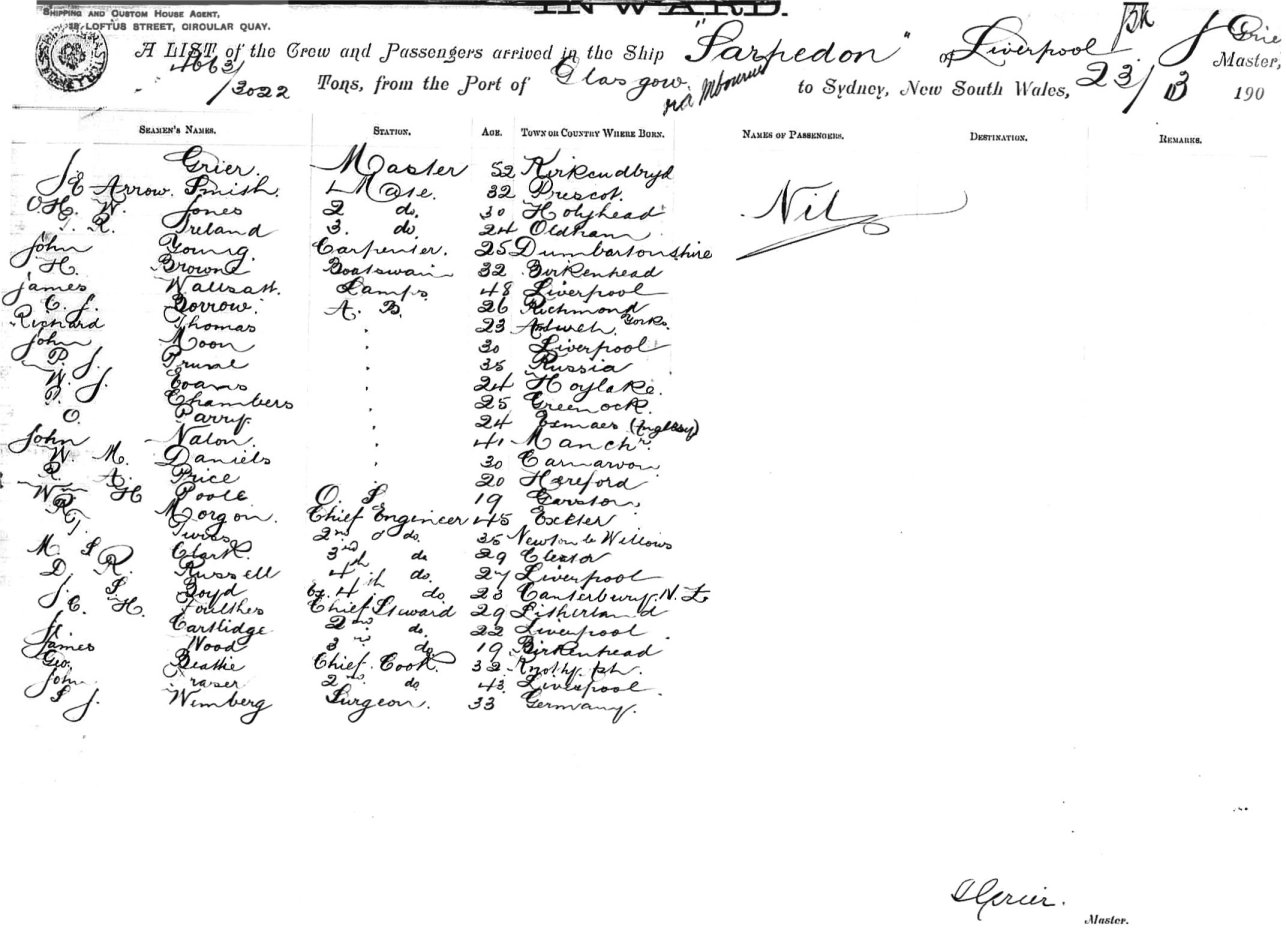 INWARD.
SHIPPING AND CUSTOM HOUSE AGENT,
LOFTUS STREET, CIRCULAR QUAY.
A LIST of the Crew and Passengers arrived in the Ship "Sarpedon" of Liverpool J Grie Master,
4663/3022 Tons, from the Port of Glasgow via Mbourne to Sydney, New South Wales, 23/ 190
SEAMEN'S NAMES. STATION. AGE. TOWN OR COUNTRY WHERE BORN. NAMES OF PASSENGERS. DESTINATION. REMARKS.
J Grier. Master 52 Kirkcudbryd
J E Arrow Smith. 1 Mate. 32 Prescot. Nil
O. H. W. Jones 2 do. 30 Holyhead
R. Ireland 3. do. 24 Oldham
John Young. Carpenter. 25 Dumbartonshire
H. Browne Boatswain 32 Birkenhead
James Lamps 48 Liverpool
C. J. Borrow. A. B. 26 Richmond Yorks.
Richard Thomas 23
John Moon 30 Liverpool
P. J. 35 Russia
W. J. Evans 24 Hoylake.
Chambers 25 Greenock.
O. Parry 24
John Nalon. 41 Manchr.
W. M. Daniels 30 Carnarvon
R. A. Price 20 Hereford
Wm H Poole O. S 19 Garston
R. Morgan. Chief Engineer 45 Exeter
T. 2nd do. 35 Newton le Willows
M. Clark. 3rd do 29
D. R. Russell 4th do. 27 Liverpool
J. S. Boyd 4th do 23 Canterbury. N. Z.
C. H. Foulkes Chief Steward 29 Litherland
Cartlidge 2nd do. 22 Liverpool
James Wood 3rd do 19 Birkenhead
Geo. Beattie Chief Cook. 32
John Fraser 2nd do 43 Liverpool
S J. Wimberg Surgeon. 33 Germany.
J Grier.
Master.